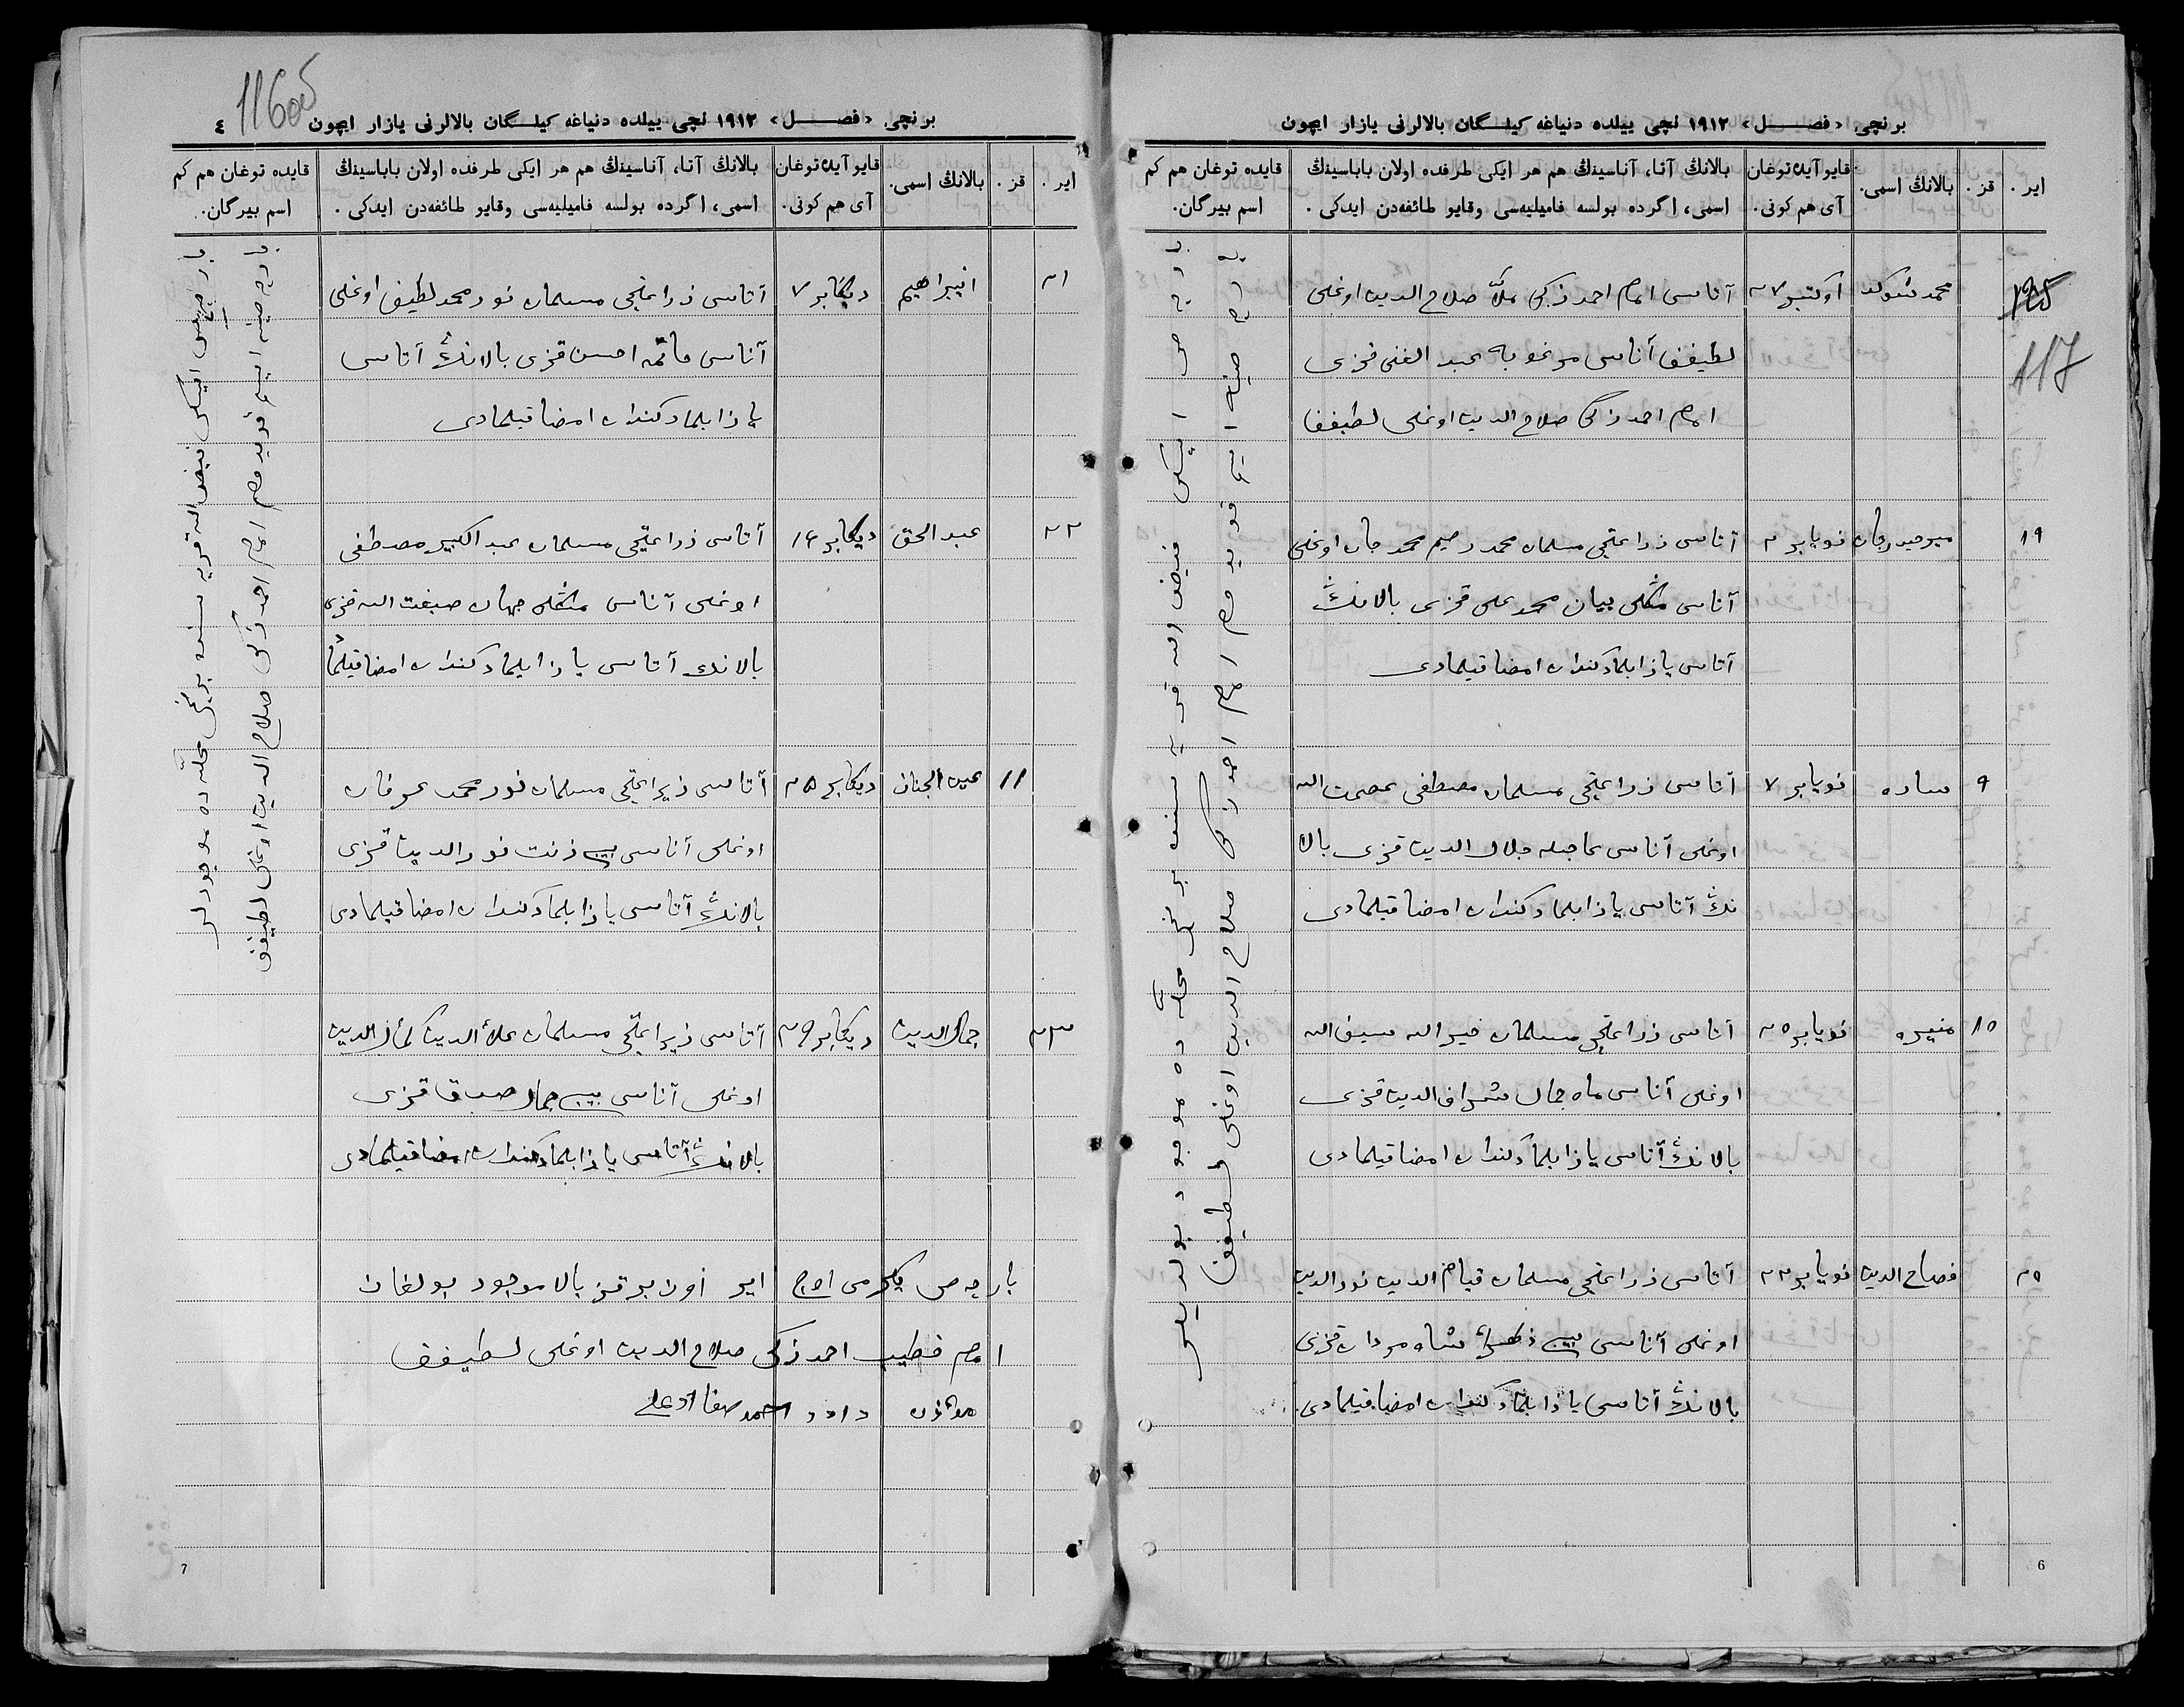 برنچی «فصل» ۱۹۱۲ نچی ییلده دنیاغه کیلگان بالالرنی یازار ایچون
ایر. قز. بالانڭ اسمی. قایو آیده توغان آی هم کونی. بالانڭ آتا، آناسینڭ هم هر ایکی طرفده اولان باباسینڭ اسمی، اگرده بولسه فامیلیه‌سی وقایو طائفه‌دن ایدکی. قایده توغان هم کم اسم بیرگان.
117
محمد شوکت اوکتبر ۲۷ آتاسی امام احمد زکی ملّا صلاح الدین اوغلی
لطیفف آناسی مرغوبه عبد الغنی قزی
امام احمد زکی صلاح الدین اوغلی لطیفف
۱۹ میرحیدرجان نویابر ۲ آتاسی زراعتچی مسلمان محمد رحیم محمد جان اوغلی
آناسی مڭلی بیان محمد علی قزی بالانڭ
آتاسی یازا بلمادکندان امضا قیلمادی
۹ ساره نویابر ۷ آتاسی زراعتچی مسلمان مصطفی عصمت الله
اوغلی آناسی عاجله جلال الدین قزی بالا
نڭ آتاسی یازا بلمادکندان امضا قیلمادی
۱۰ منیره نویابر ۲۵ آتاسی زراعتچی مسلمان خیر الله سیف الله
اوغلی آناسی ماه جمال شراف الدین قزی
بالانڭ آتاسی یازا بلمادکندان امضا قیلمادی
۲۰ فصاح الدین نویابر ۲۲ آتاسی زراعتچی مسلمان قیام الدین نور الدین
اوغلی آناسی بیبی زهراء شاه مردان قزی
بالانڭ آتاسی یازا بلمادکندان امضا قیلمادی
بارچه‌سی فیض الله قریه سنده برنچی محلّه ده موجود
امام احمد زکی صلاح الدین اوغلی لطیفف
6
116об
برنچی «فصل» ۱۹۱۲ نچی ییلده دنیاغه کیلگان بالالرنی یازار ایچون ٤
ایر. قز. بالانڭ اسمی. قایو آیده توغان آی هم کونی. بالانڭ آتا، آناسینڭ هم هر ایکی طرفده اولان باباسینڭ اسمی، اگرده بولسه فامیلیه‌سی وقایو طائفه‌دن ایدکی. قایده توغان هم کم اسم بیرگان.
۲۱ ایبراهیم دیکابر ۷ آتاسی زراعتچی مسلمان نور محمد لطیف اوغلی
آناسی احسن قزی بالانڭ آتاسی
یازا بلمادکندان امضا قیلمادی
۲۲ عبد الحق دیکابر ۱۴ آتاسی زراعتچی مسلمان عبد الکبیر مصطفی
اوغلی آناسی مڭلی جهان صبغت الله قزی
بالانڭ آتاسی یازا بلمادکندان امضا قیلما
۱۱ عین الجنان دیکابر ۲۵ آتاسی زیراعتچی مسلمان نور محمد عرفان
اوغلی آناسی بیبی زنت نور الدین قزی
بالانڭ آتاسی یازا بلمادکندان امضا قیلمادی
۲۳ جمال الدین دیکابر ۲۹ آتاسی زیراعتچی مسلمان علاء الدین کمال الدین
اوغلی آناسی بیبی جمال قزی
بالانڭ آتاسی یازا بلمادکندان امضا قیلمادی
بارچه‌سی یکرمی اوچ ایر اون بر قز بالا موجود بولغان
امام خطیب احمد زکی صلاح الدین اوغلی لطیفف
مؤذن داود احمد صفا اوغلی
بارچه‌سی فیض الله قریه سنده برنچی محلّه ده موجودلر
امام احمد زکی صلاح الدین اوغلی لطیفف
7